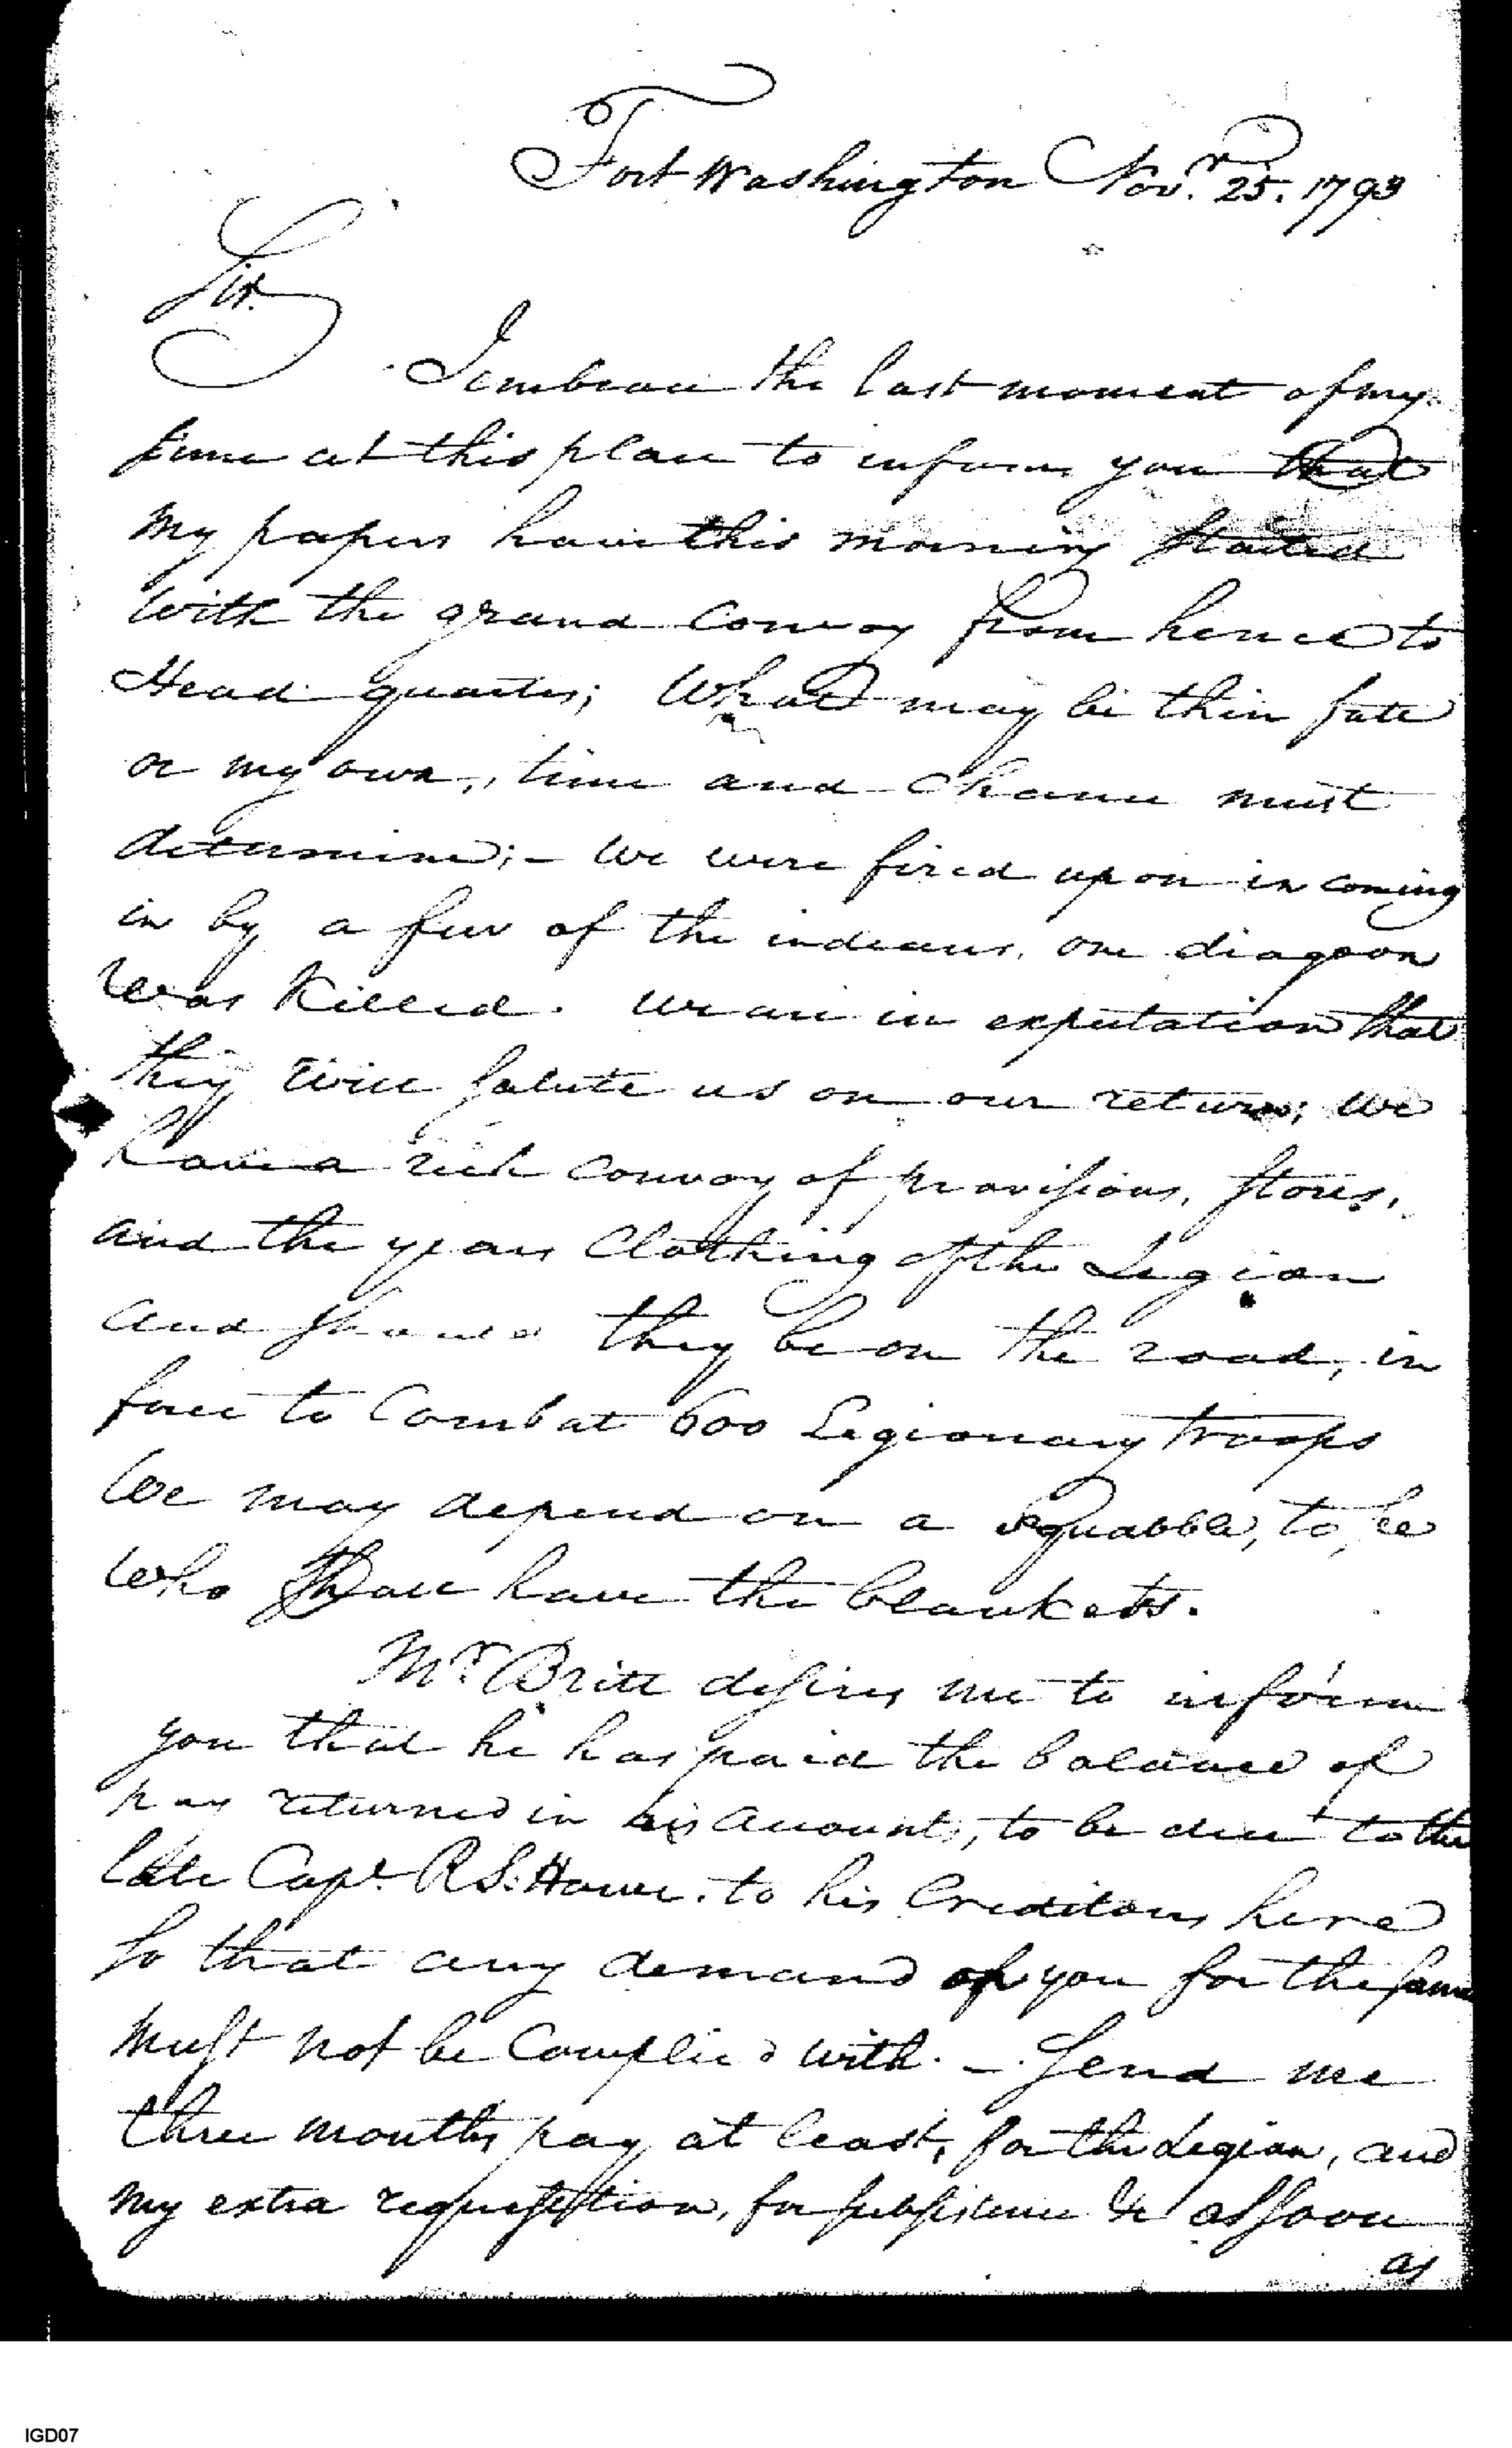 Fort Washington Novr. 25. 1793
Sir.
I embrace the last moment of my
time at this place to inform you that
my papers have this morning started
with the grand Convoy from hence to
Head quarters; What may be their fate
or my own, time and Chance must
determine; - We were fired upon in coming
in by a few of the indians, one dragoon
was Killed. We are in expectation that
they will salute us on our return; we
have a rich convoy of provisions, stores,
and the years Clothing of the Legion
and should they be on the road, in
force to Combat 600 Legionary troops
We may depend on a squabble, to see
Who shall have the blankets.
Mr. Britt desires me to inform
you that he has paid the balance of
pay returned in his accounts, to be due to the
late Capt. R S: Howe. to his Creditors here
so that any demand of you for the same
must not be Complied with. - Send me
three months pay at least, for the Legion, and
my extra requisition, for subsistence &c as soon
as
IGD07